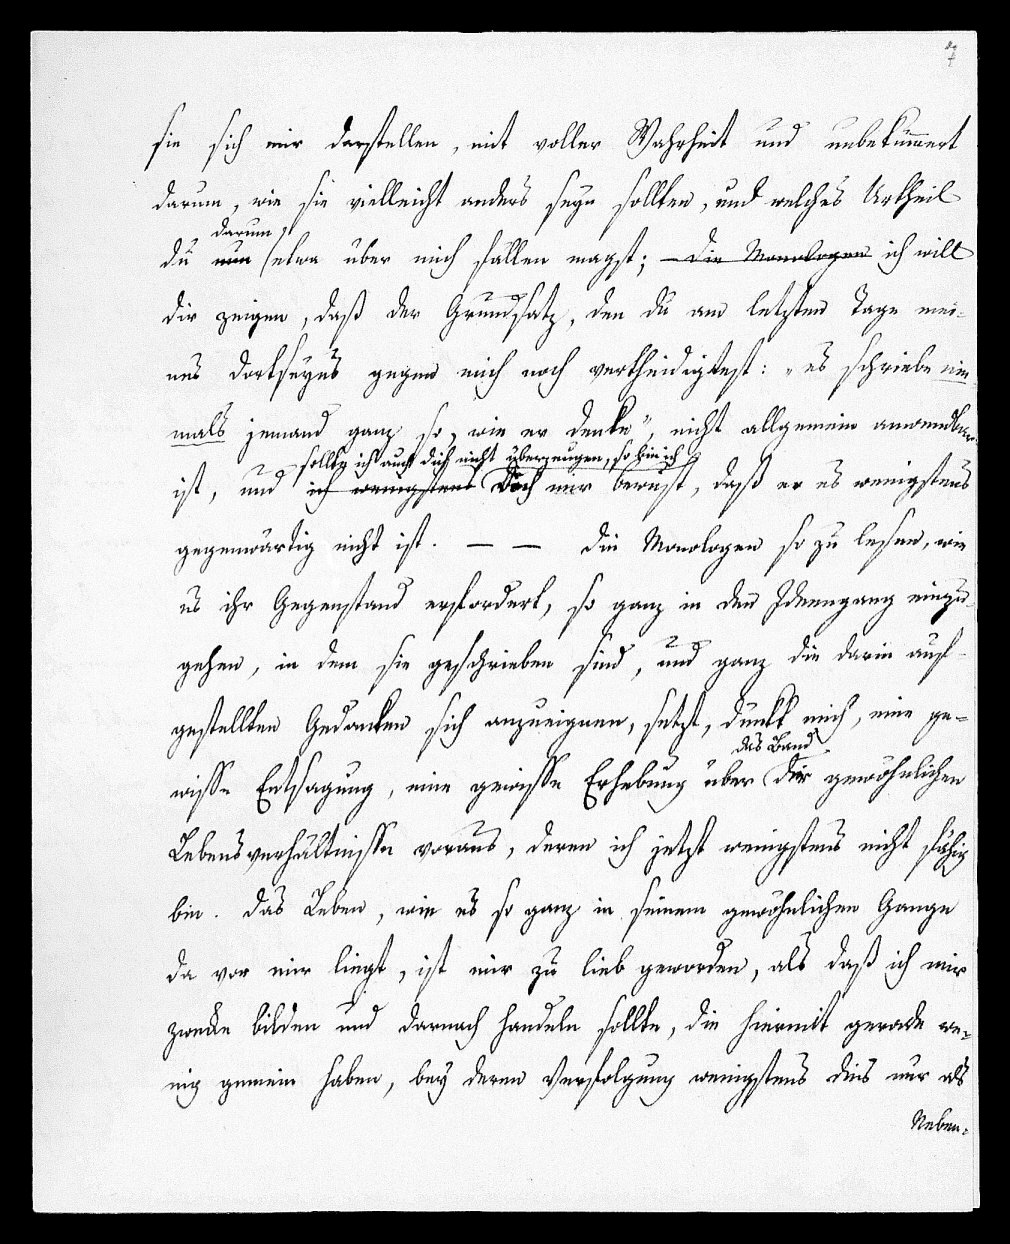 7
sie sich mir darstellen, mit voller Wahrheit und unbekümmert
darum, wie sie vielleicht anders seyn sollten, und welches Urtheil
darum
du nun etwa über mich fällen magst; – die Monologen ich will
dir zeigen, daß der Grundsatz, den du am letzten Tage mei-
nes Dortseyns gegen mich noch vertheidigtest: „es schriebe nie-
mals jemand ganz so, wie er denke“, nicht allgemein anwendbar
sollte ich auch dich nicht überzeugen, so bin ich
ist, und ich wenigstens doch mir bewust, daß er es wenigstens
gegenwärtig nicht ist. — — Die Monologen so zu lesen, wie
es ihr Gegenstand erfordert, so ganz in den Ideengang einzu-
gehen, in dem sie geschrieben sind, und ganz die darin auf-
gestellten Gedanken sich anzueignen, setzt, dünkt mich, eine ge-
das Band
wisse Entsagung, eine gewisse Erhebung über der gewöhnlichen
Lebensverhältnisse voraus, deren ich jetzt wenigstens nicht fähig
bin. Das Leben, wie es so ganz in seinem gewöhnlichen Gange
da vor mir liegt, ist mir zu lieb geworden, als daß ich mir
Zwecke bilden und darnach handeln sollte, die hiermit gerade we-
nig gemein haben, bey deren Verfolgung wenigstens dies nur als
Neben-